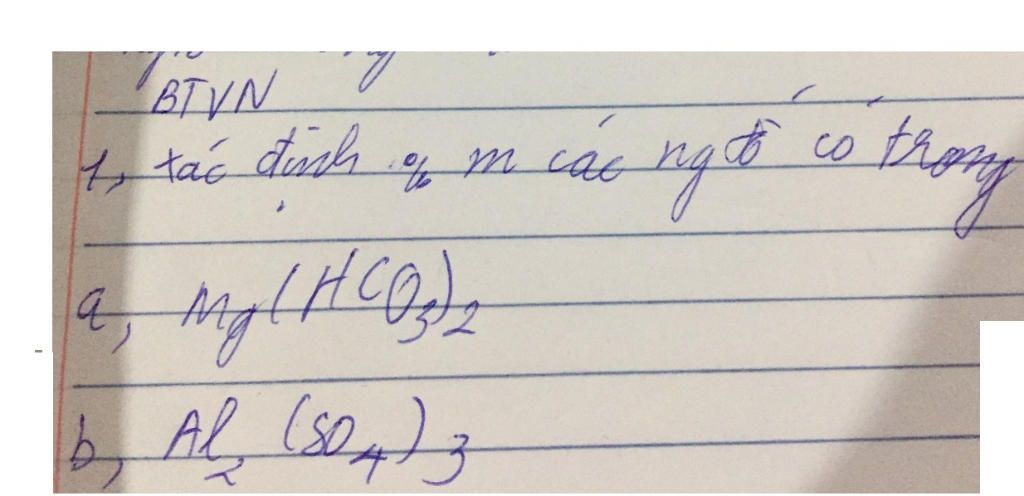 BTVN
1, xác định % m các ngtố có trong
a, Mg(HCO3)2
b, Al2 (SO4)3